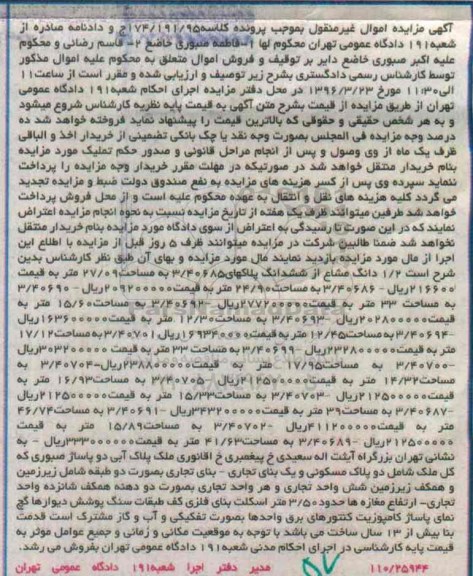 آگهی مزایده اموال غیرمنقول بموجب پرونده کلاسه ۱۷۴/۱۹۱/۹۵ج و دادنامه صادره از
شعبه ۱۹۱ دادگاه عمومی تهران محکوم لها ۱- فاطمه صبوری خاضع ۲- قاسم رضائی و محکوم
علیه اکبر صبوری خاضع دایر بر توقیف و فروش اموال متعلق به محکوم علیه اموال مذکور
توسط کارشناس رسمی دادگستری بشرح زیر توصیف و ارزیابی شده و مقرر است از ساعت ۱۱
الی ۱۱:۳۰ مورخ ۱۳۹۶/۳/۲۳ در محل دفتر مزایده اجرای احکام شعبه ۱۹۱ دادگاه عمومی
تهران از طریق مزایده از قیمت بشرح متن آگهی به قیمت پایه نظریه کارشناس شروع میشود
و به هر شخص حقیقی و حقوقی که بالاترین قیمت را پیشنهاد نماید فروخته خواهد شد ده
درصد وجه مزایده فی المجلس بصورت وجه نقد یا چک بانکی تضمینی از خریدار اخذ و الباقی
ظرف یک ماه از وی وصول و پس از انجام مراحل قانونی و صدور حکم تملیک مورد مزایده
بنام خریدار منتقل خواهد شد در صورتیکه در مهلت مقرر خریدار وجه مزایده را پرداخت
ننماید سپرده وی پس از کسر هزینه های مزایده به نفع صندوق دولت ضبط و مزایده تجدید
می گردد کلیه هزینه های نقل و انتقال به عهده محکوم علیه است و از محل فروش پرداخت
خواهد شد طرفین میتوانند ظرف یک هفته از تاریخ مزایده نسبت به نحوه انجام مزایده اعتراض
نمایند که در این صورت تا رسیدگی به اعتراض از سوی دادگاه مورد مزایده بنام خریدار منتقل
نخواهد شد ضمنا طالبین شرکت در مزایده میتوانند ظرف ۵ روز قبل از مزایده با اطلاع این
اجرا از مال مورد مزایده بازدید نمایند مال مورد مزایده و بهای آن طبق نظر کارشناس بدین
شرح است ۱/۲ دانگ مشاع از ششدانگ پلاکهای ۳/۴۰۶۸۵ به مساحت ۲۷/۰۹ متر به قیمت
ریال - ۳/۴۰۶۸۶ به مساحت ۲۴/۹۰ متر به قیمت ریال - ۳/۴۰۶۹۰
به مساحت ۳۳ متر به قیمت ریال - ۳/۴۰۶۹۲ به مساحت ۱۵/۶۰ متر به
قیمت ریال - ۳/۴۰۶۹۳ به مساحت ۱۲/۳۰ متر به قیمت ریال
-۳/۴۰۶۹۴ به مساحت ۱۲/۴۵ متر به قیمت ریال ۳/۴۰۷۰۱ به مساحت ۱۷/۱۲
متر به قیمت ریال - ۳/۴۰۶۹۹ به مساحت متر به قیمت ریال
-۳/۴۰۷۰۰ به مساحت ۱۷/۹۵ متر به قیمت ریال - ۳/۴۰۷۰۴ به
مساحت ۱۴/۳۲ متر به قیمت ریال - ۳/۴۰۷۰۵ به مساحت ۱۶/۹۳ متر به
قیمت ریال - ۳/۴۰۷۰۳ به مساحت ۱۵/۳۳ متر به قیمت ریال
-۳/۴۰۶۸۷ به مساحت ۳۹ متر به قیمت ریال - ۳/۴۰۶۹۱ به مساحت ۴۶/۷۴
متر به قیمت ریال - ۳/۴۰۷۰۲ به مساحت ۱۵/۸۹ متر به قیمت
ریال - ۳/۴۰۶۸۹ به مساحت ۴۱/۶۳ متر به قیمت ریال - به
نشانی تهران بزرگراه آیت اله سعیدی خ پیغمبری خ افانوری ملک پلاک آبی دو پاساژ صبوری که
کل ملک شامل دو پلاک مسکونی و یک بنای تجاری - بنای تجاری بصورت دو طبقه شامل زیرزمین
و همکف زیرزمین شش واحد تجاری و هر واحد تجاری بصورت دو دهنه همکف شانزده واحد
تجاری- ارتفاع مغازه ها حدود ۳/۵۰ متر اسکلت بنای فلزی کف طبقات سنگ پوشش دیوارها گچ
نمای پاساژ کامپوزیت کنتورهای برق واحدها بصورت تفکیکی و آب و گاز مشترک است قدمت
بنا بیش از ۱۳ سال ساخت می باشد با توجه به موقعیت مکانی و زمانی و جمیع عوامل موثر به
قیمت پایه کارشناسی در اجرای احکام مدنی شعبه ۱۹۱ دادگاه عمومی تهران بفروش می رسد.
۱۱۰/۲۵۹۴۴ مدیر دفتر اجرا شعبه ۱۹۱ دادگاه عمومی تهران